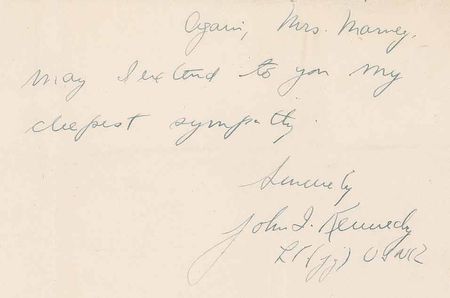 Again, Mrs. Marney,
may I extend to you my
deepest sympathy.
Sincerely
John F. Kennedy
Lt (jg) USNR